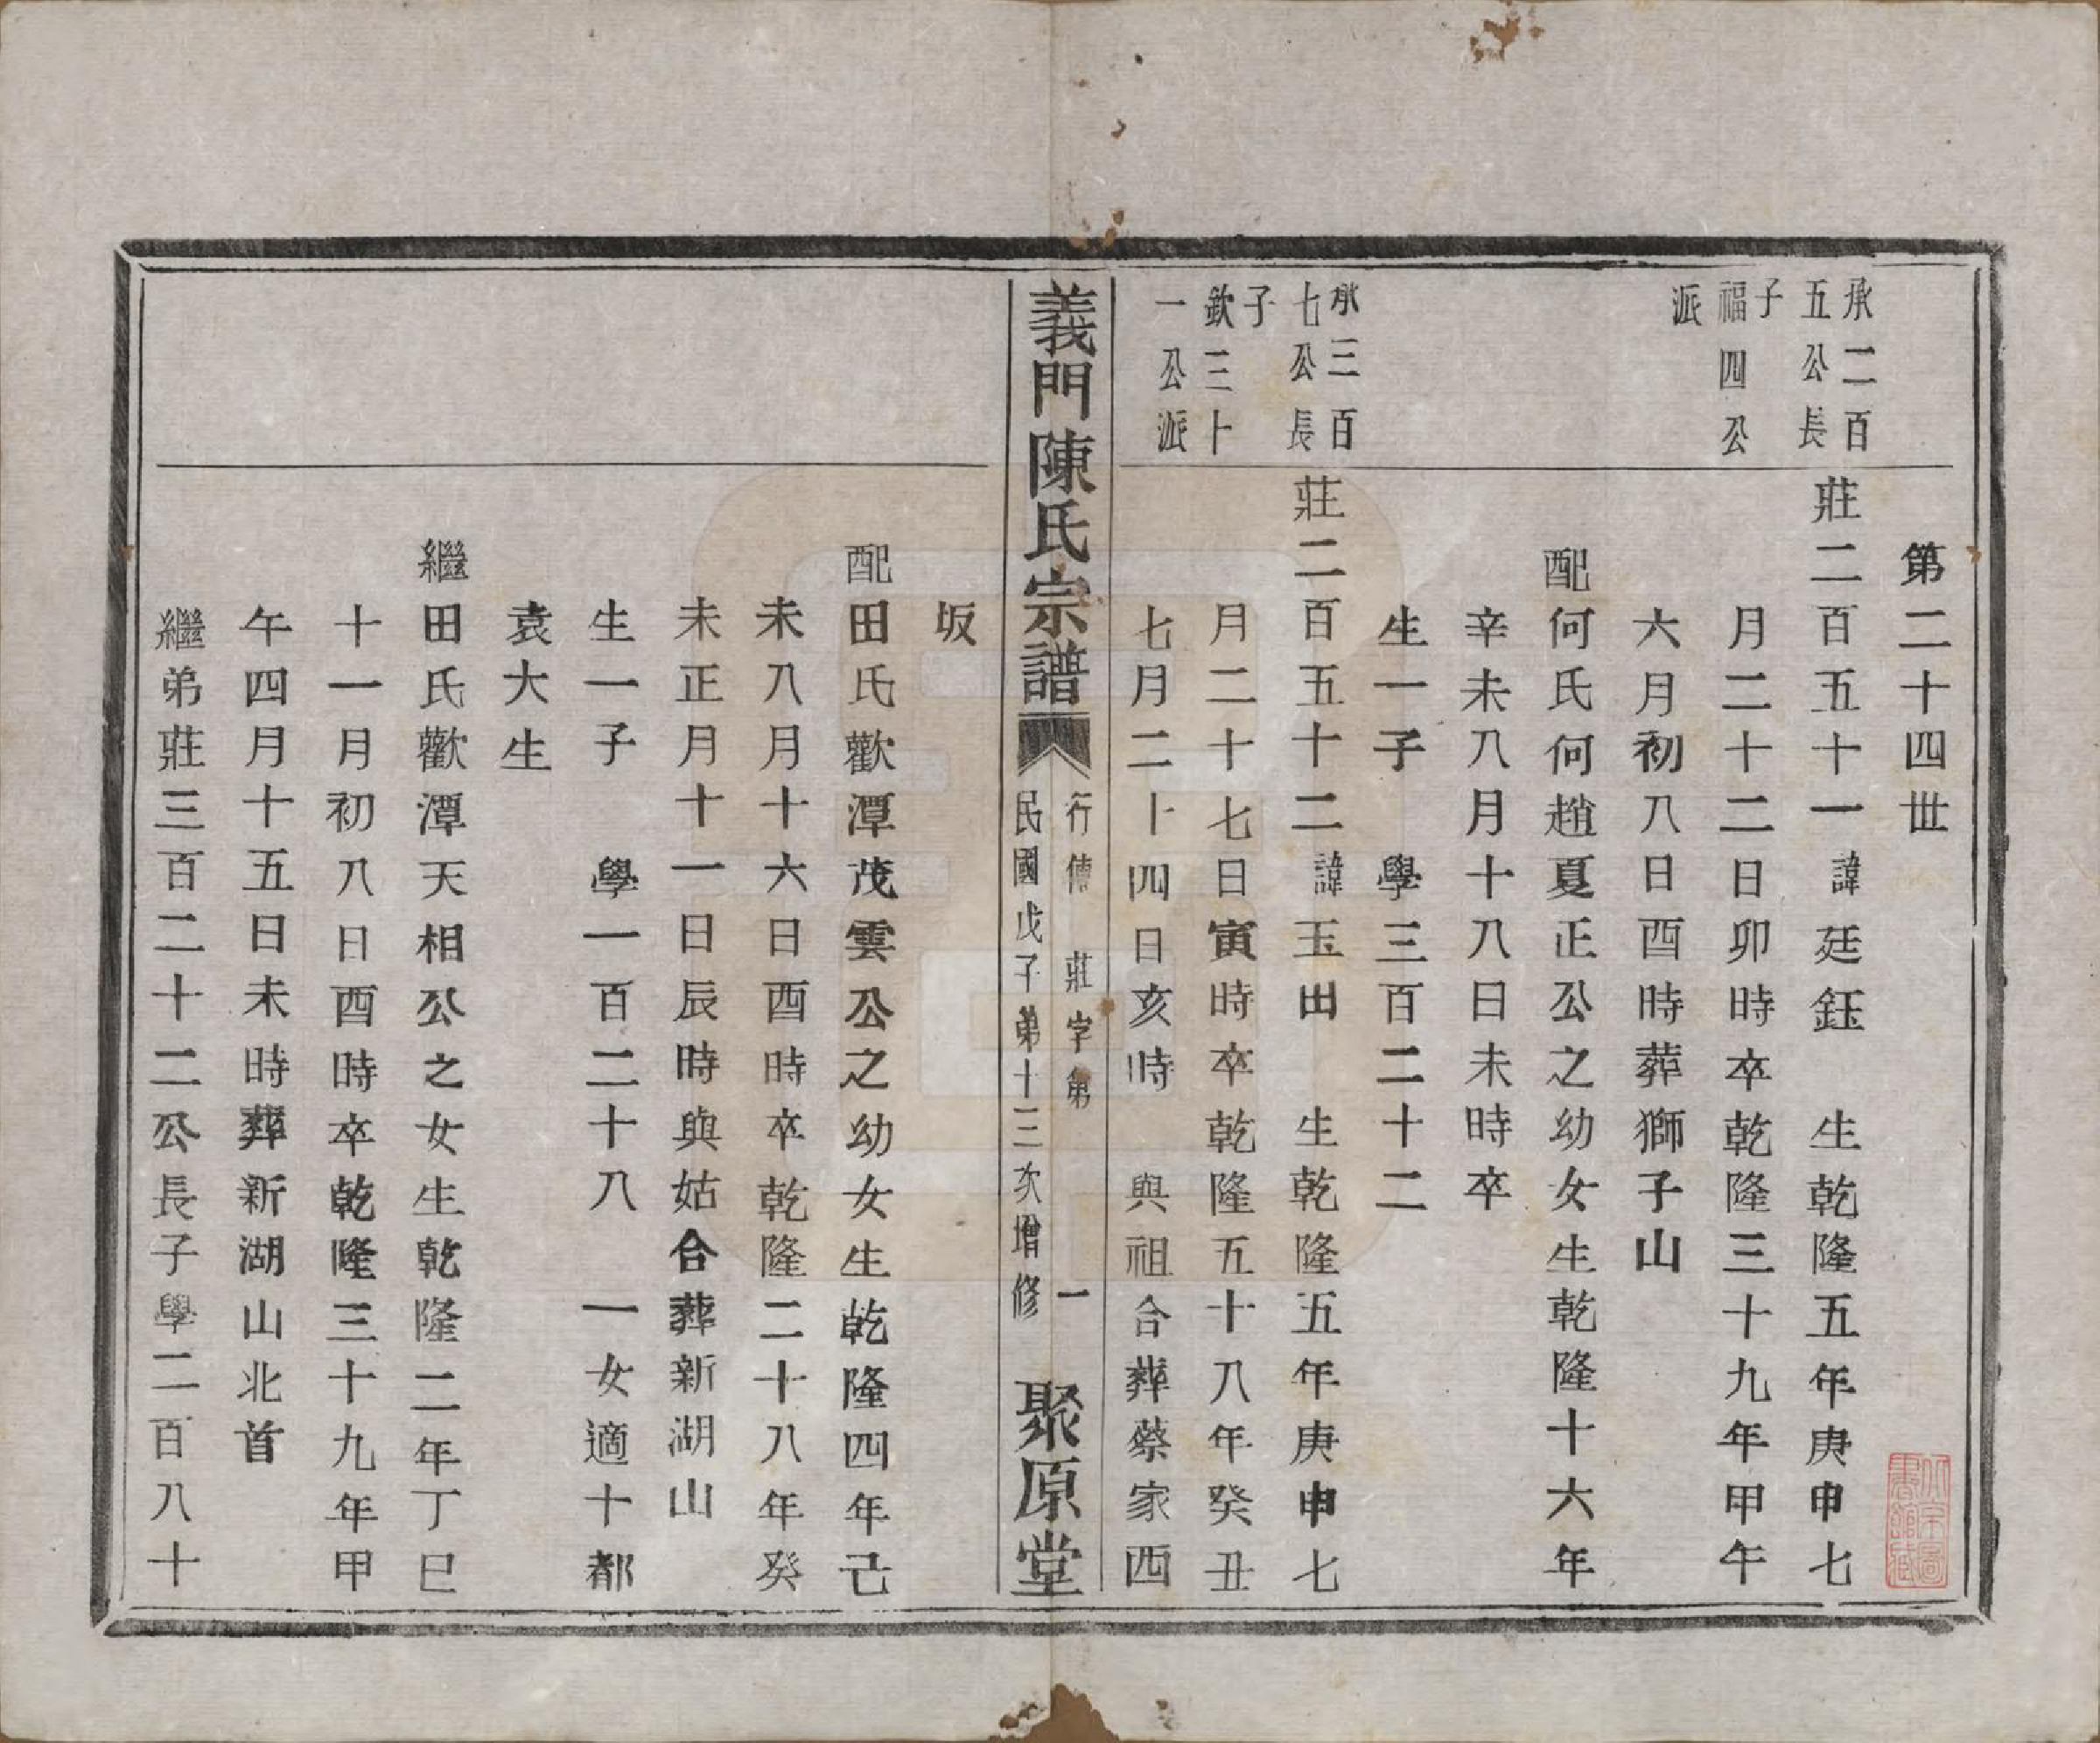 第二十四世
承二百
五公長
子
福四公
派
莊二百五十一諱廷鈺 生乾隆五年庚申七
月二十二日卯時卒乾隆三十九年甲午
六月初八日酉時葬獅子山
配何氏何趙夏正公之幼女生乾隆十六年
辛未八月十八日未時卒
生一子 學三百二十二
承三百
七公長
子
欽三十
一公派
莊二百五十二諱玉田 生乾隆五年庚申七
月二十七日寅時卒乾隆五十八年癸丑
七月二十四日亥時 與祖合葬蔡家西
義門陳氏宗譜
行傳 莊字第 一
民國戊子第十三次增修
聚原堂
坂
配田氏歡潭茂雲公之幼女生乾隆四年己
未八月十六日酉時卒乾隆二十八年癸
未正月十一日辰時與姑合葬新湖山
生一子 學一百二十八 一女適十都
袁大生
繼田氏歡潭天相公之女生乾隆二年丁巳
十一月初八日酉時卒乾隆三十九年甲
午四月十五日未時葬新湖山北首
繼弟莊三百二十二公長子學二百八十